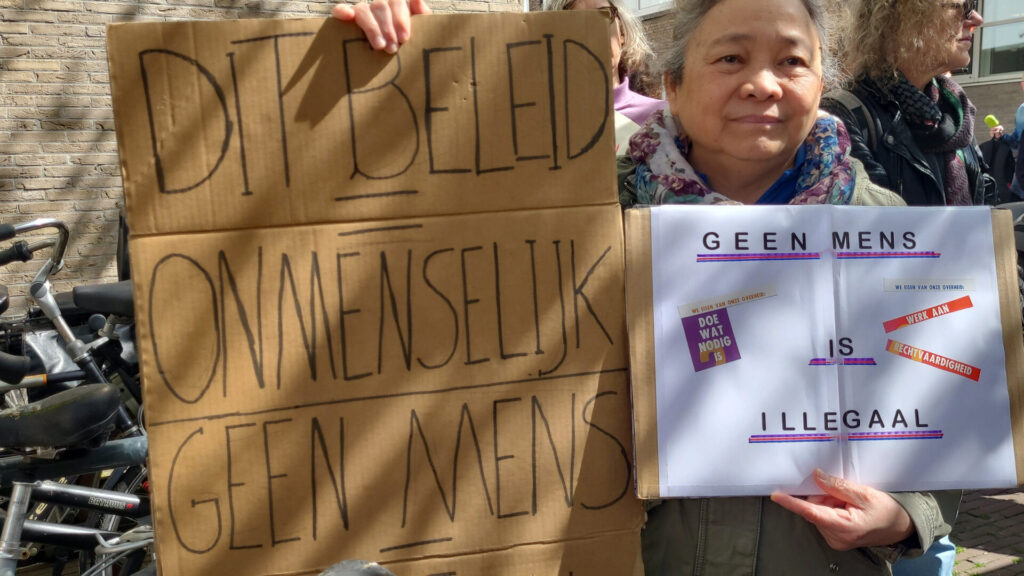 DIT BELEID
ONMENSELIJK
GEEN MENS
GEEN MENS
WE EISEN VAN ONZE OVERHEID:
DOE
WAT
NODIG
IS
WE EISEN VAN ONZE OVERHEID:
WERK AAN
RECHTVAARDIGHEID
IS
ILLEGAAL